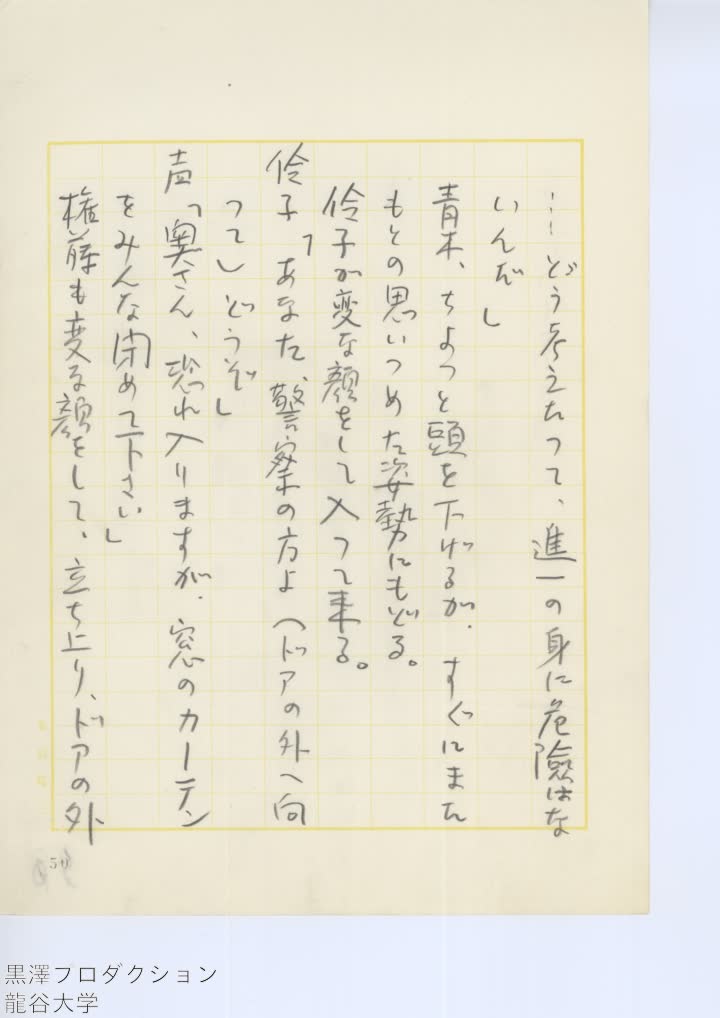 …どう考えたって、進一の身に危險はな
いんだ」
青木、ちょっと頭を下げるが、すぐにまた
もとの思いつめた姿勢にもどる。
伶子が変な顔をして入って来る。
伶子「あなた、警察の方よ（ドアの外へ向
って）どうぞ」
声「奥さん、恐れ入りますが、窓のカーテン
をみんな閉めて下さい」
権藤も変な顔をして、立ち上り、ドアの外
50
黒澤プロダクション
龍谷大学